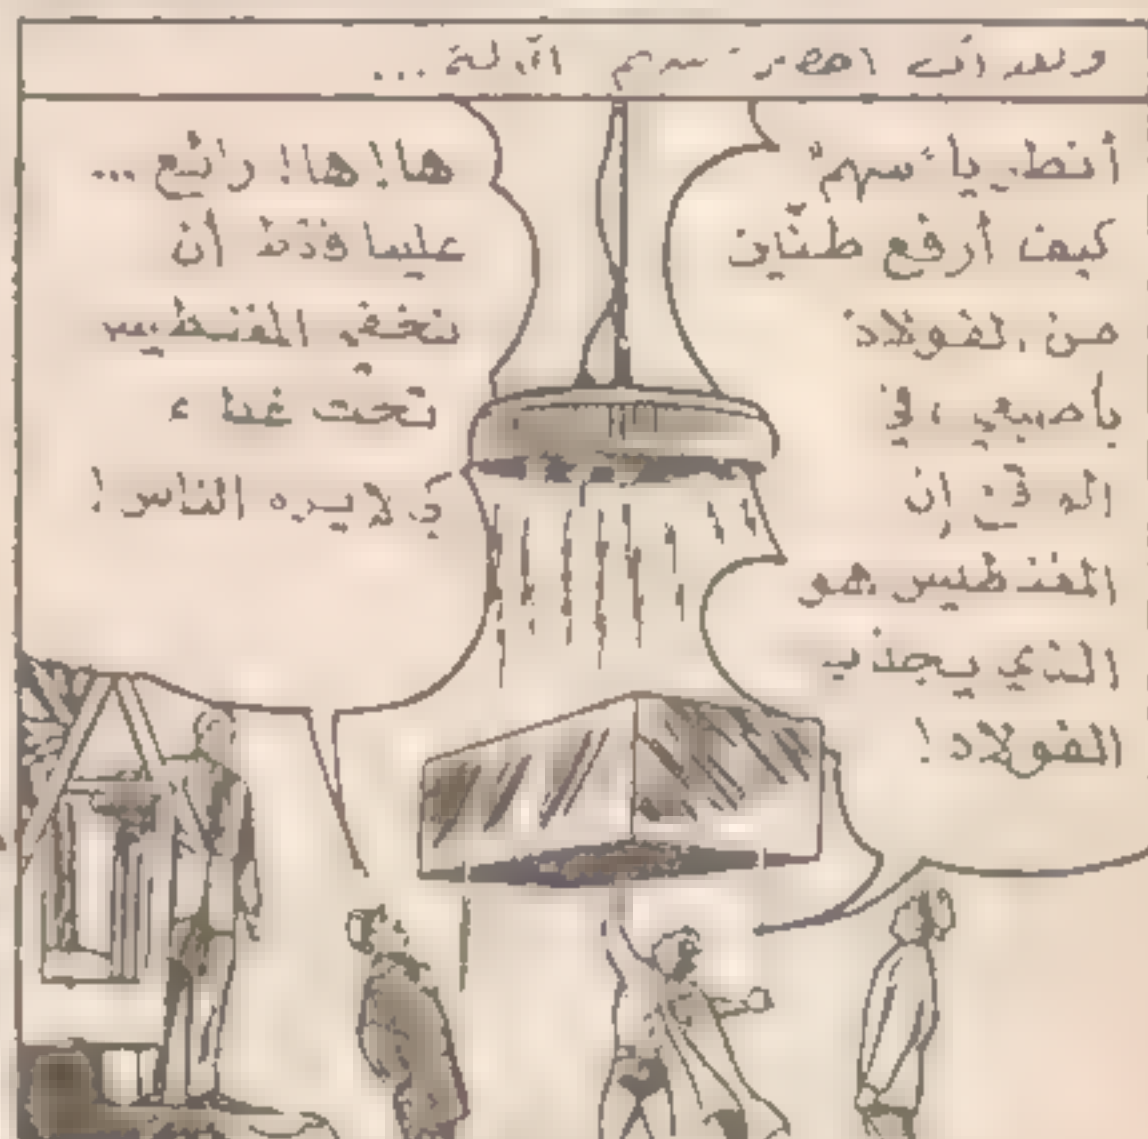 وبعد أن احضر سهم الآلة ...
أنظر يا "سهم"
كيف أرفع طنّين
من الفولاذ
بأصبعي ، في
الواقع إن
المغنطيس هو
الذي يجذب
الفولاذ!
ها! ها! رائع ...
علينا فقط أن
نخفي المغنطيس
تحت غطاء
كي لا يره الناس!